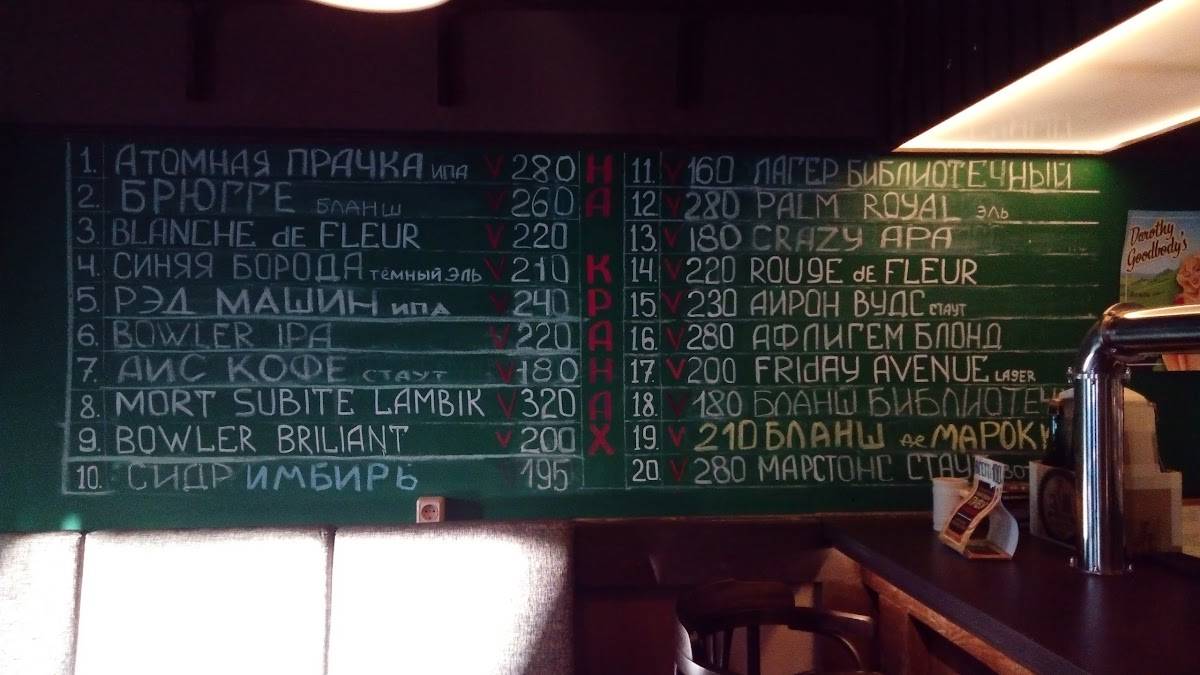 1. АТОМНАЯ ПРАЧКА ИПА V 280
2. БРЮГГЕ БЛАНШ V 260
3. BLANCHE de FLEUR V 220
4. СИНЯЯ БОРОДА ТЁМНЫЙ ЭЛЬ V 210
5. РЭД МАШИН ИПА V 240
6. BOWLER IPA V 220
7. АИС КОФЕ СТАУТ V 180
8. MORT SUBITE LAMBIK V 320
9. BOWLER BRILIANT V 200
10. СИДР ИМБИРЬ 195
НА КРАНАХ
11. V 160 ЛАГЕР БИБЛИОТЕЧНЫЙ
12. V 280 PALM ROYAL ЭЛЬ
13. V 180 CRAZY APA
14. V 220 ROUGE de FLEUR
15. V 230 АЙРОН ВУДС СТАУТ
16. V 280 АФЛИГЕМ БЛОНД
17. V 200 FRIDAY AVENUE LAGER
18. V 180 БЛАНШ БИБЛИОТЕЧ
19. V 210 БЛАНШ де МАРОК
20. V 280 МАРСТОНС СТАУ
Dorothy
Goodbody's